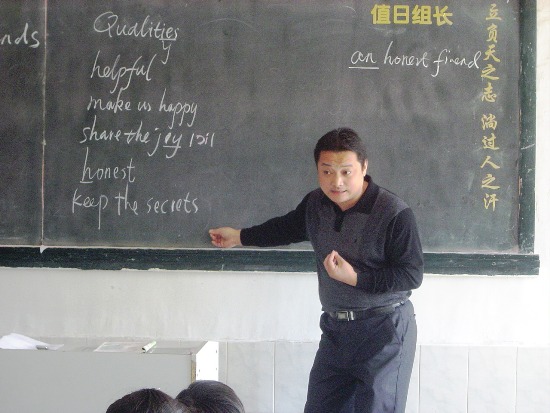 nds
Qualities
y
helpful
make us happy
share the joy /ɔi/
honest
keep the secrets
值日组长
an honest friend
立负天之志 淌过人之汗